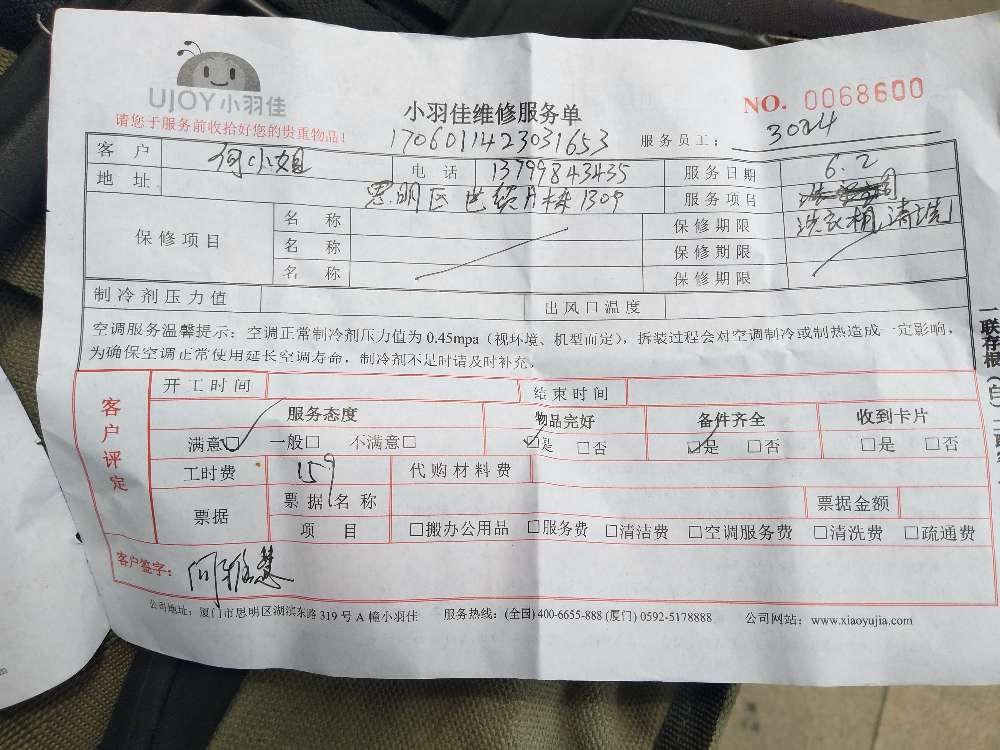 UJOY小羽佳
请您于服务前收拾好您的贵重物品！
小羽佳维修服务单
NO. 0068600
1706011423031653
服务员工： 3024
客户 何小姐 电话 13799843435 服务日期 6.2
地址 思明区 1309 服务项目
洗衣机清洗
保修项目 名称 保修期限
名称 保修期限
名称 保修期限
制冷剂压力值 出风口温度
空调服务温馨提示：空调正常制冷剂压力值为 0.45mpa（视环境、机型而定），拆装过程会对空调制冷或制热造成一定影响，
为确保空调正常使用延长空调寿命，制冷剂不足时请及时补充。
客户评定
开工时间 结束时间
服务态度 物品完好 备件齐全 收到卡片
满意□ 一般□ 不满意□ □是 □否 □是 □否 □是 □否
工时费 159 代购材料费
票据 票据名称 票据金额
项目 □搬办公用品 □服务费 □清洁费 □空调服务费 □清洗费 □疏通费
客户签字：
公司地址：厦门市思明区湖滨东路 319 号 A 幢小羽佳 服务热线：(全国) 400-6655-888 (厦门) 0592-5178888 公司网站：www.xiaoyujia.com